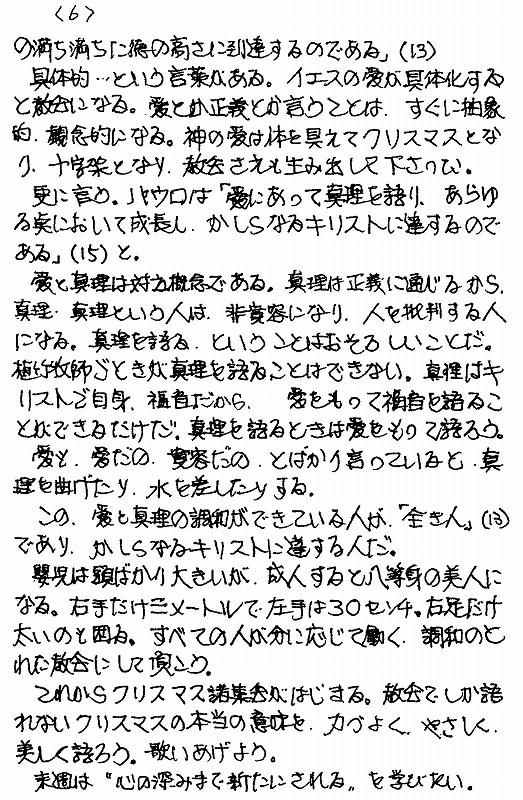 〈6〉
の満ち満ちた徳の高さに到達するのである」(13)
具体的…という言葉がある。イエスの愛が具体化する
と教会になる。愛とか正義とか言うことは、すぐに抽象
的、観念的になる。神の愛は体を具えてクリスマスとな
り、十字架となり、教会さえも生み出して下さった。
更に言う。パウロは「愛にあって真理を語り、あらゆ
る点において成長し、かしらなるキリストに達するので
ある」(15)と。
愛と真理は対立概念である。真理は正義に通じるから、
真理・真理という人は、非寛容になり、人を批判する人
になる。真理を語る、ということはおそろしいことだ。
牧師ごときが真理を語ることはできない。真理はキ
リストご自身、福音だから、愛をもって福音を語るこ
とができるだけだ。真理を語るときは愛をもって語ろう。
愛と、愛だの、寛容だの、とばかり言っていると、真
理を曲げたり、水を差したりする。
この、愛と真理の調和ができている人が、「全き人」(13)
であり、かしらなるキリストに達する人だ。
嬰児は頭ばかり大きいが、成人すると八等身の美人に
なる。右手だけ三メートルで左手は30センチ。右足だけ
太いのも困る。すべての人が分に応じて働く、調和のと
れた教会にして頂こう。
これからクリスマス諸集会がはじまる。教会でしか語
れないクリスマスの本当の意味を、力づよく、やさしく、
美しく語ろう。歌いあげよう。
来週は〝心の深みまで新たにされる〟を学びたい。